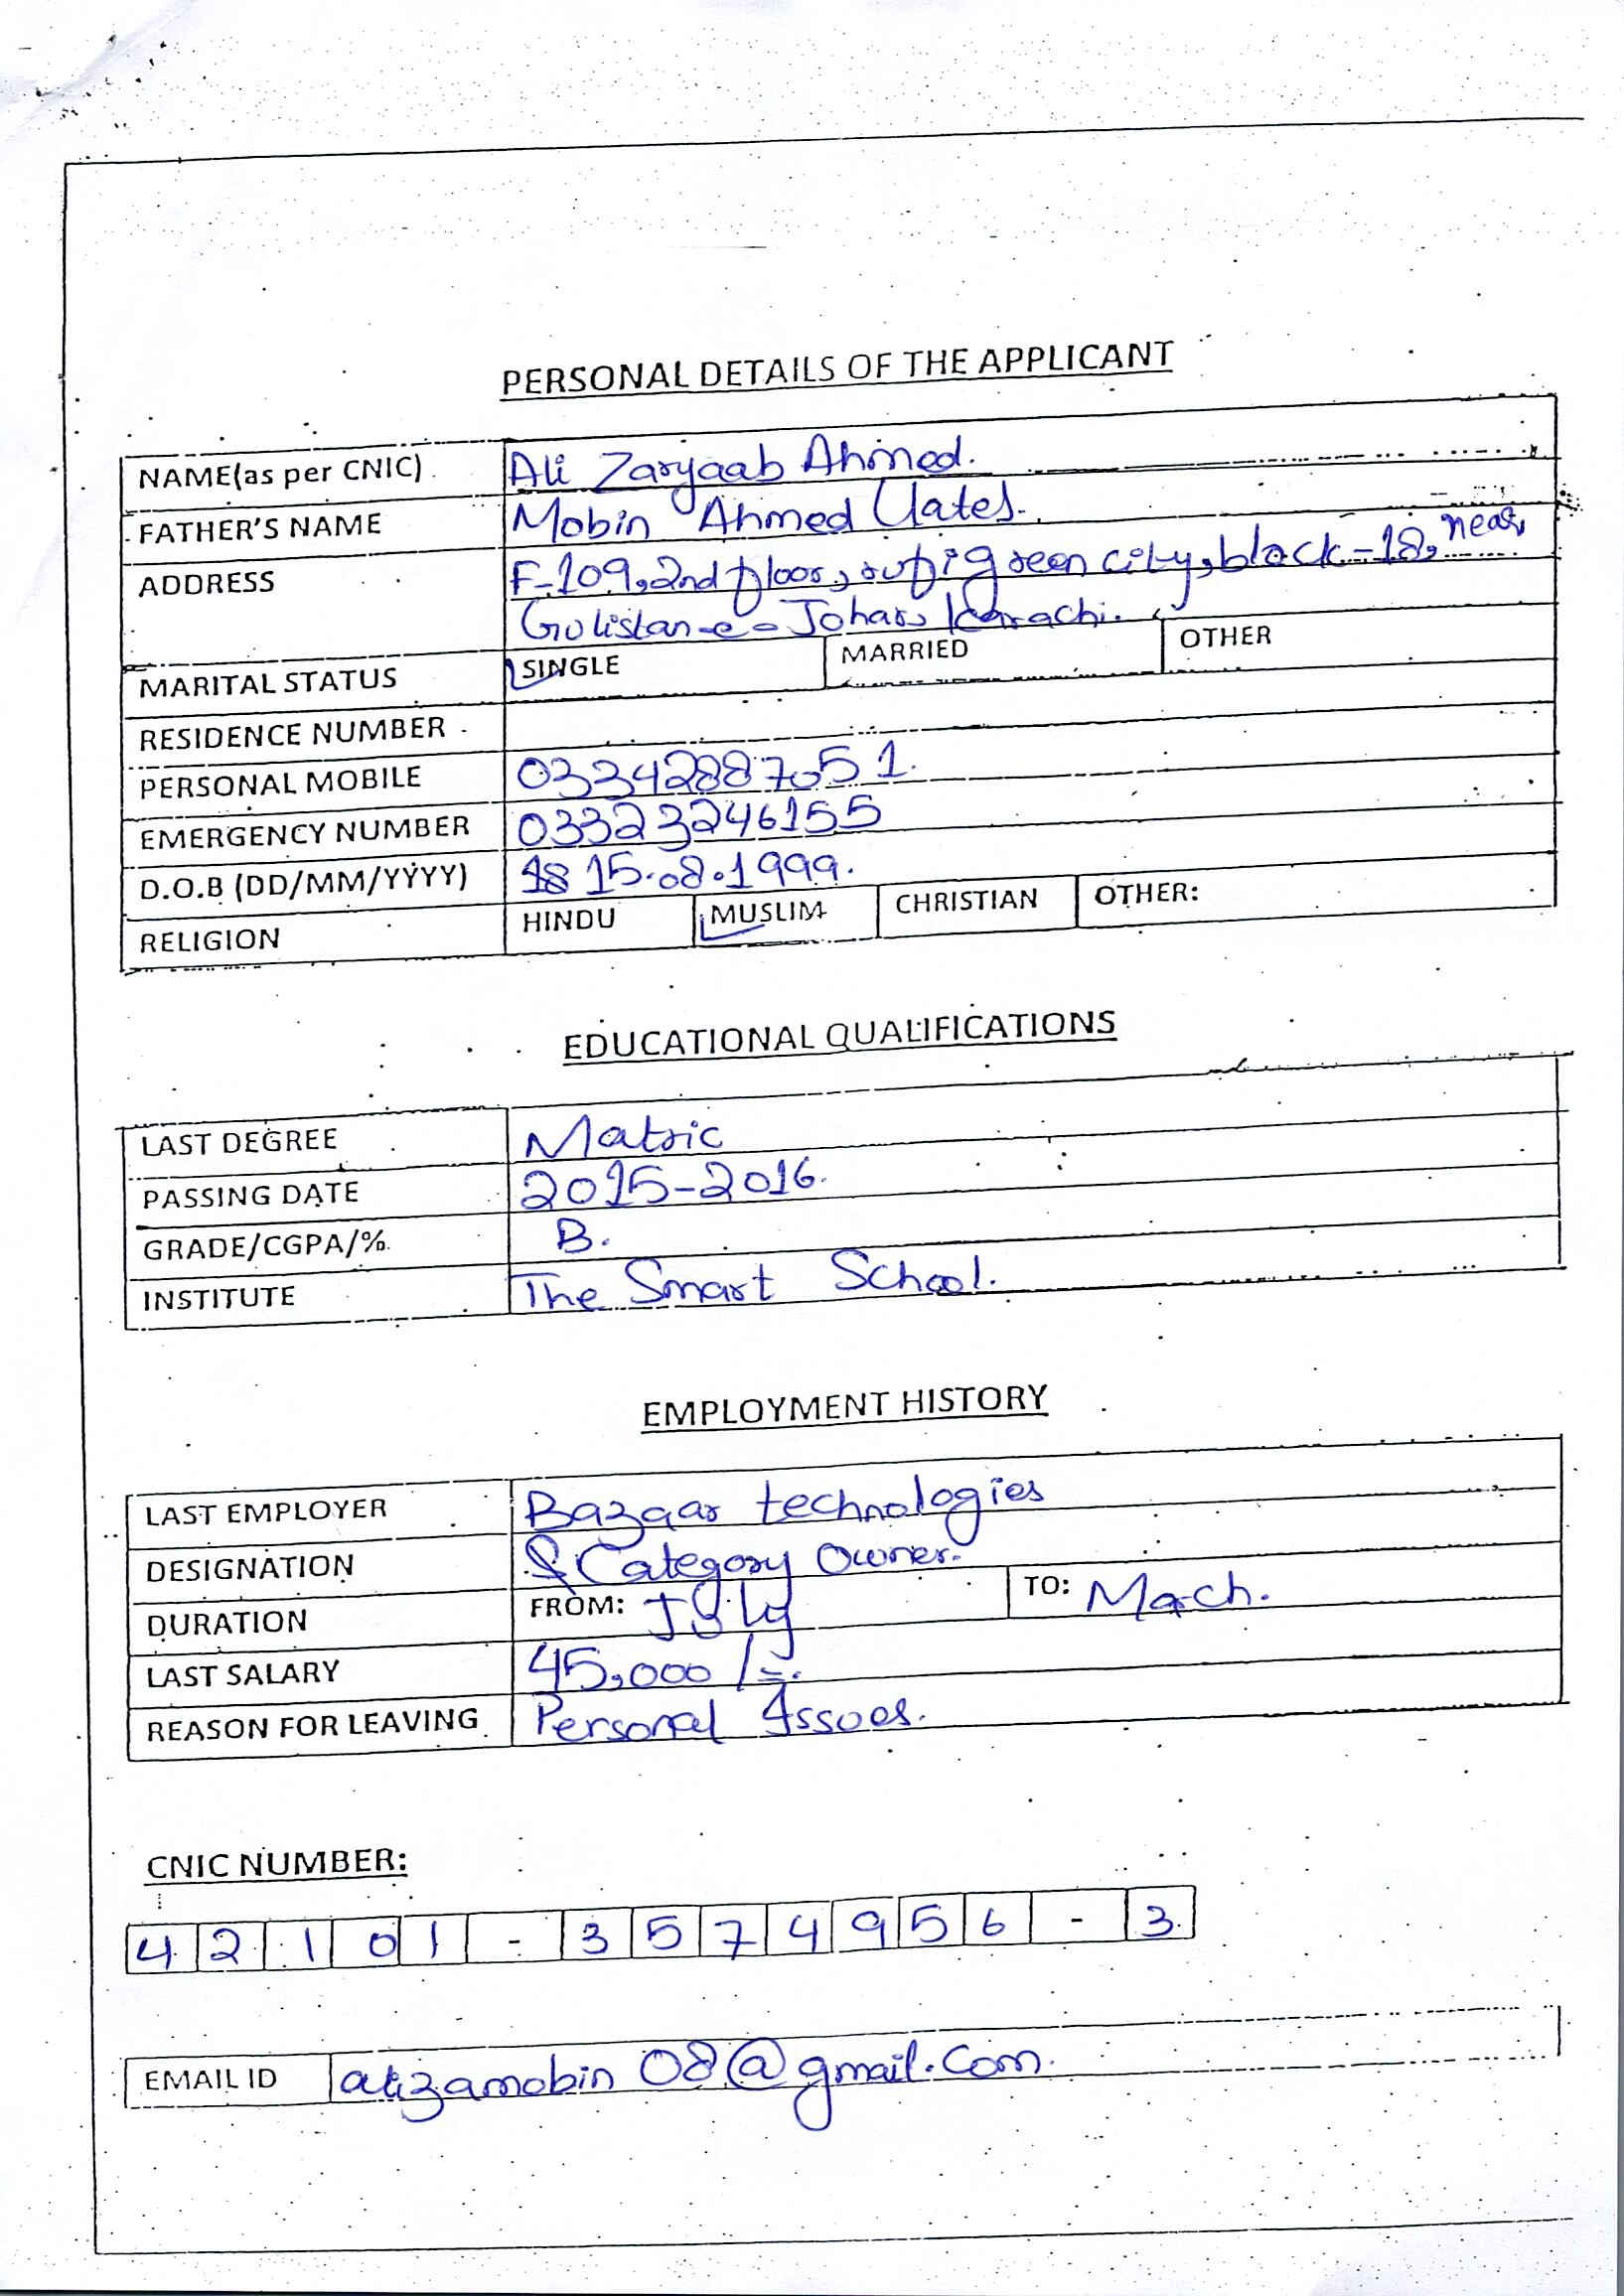 PERSONAL DETAILS OF THE APPLICANT
NAME(as per CNIC) Ali Zaryaab Ahmed.
FATHER'S NAME Mobin Ahmed (Late).
ADDRESS F-109, 2nd floor, rufi green city, block-18, near
Gulistan-e-Johar, Karachi.
MARITAL STATUS SINGLE MARRIED OTHER
RESIDENCE NUMBER
PERSONAL MOBILE 03342887051.
EMERGENCY NUMBER 03323246155
D.O.B (DD/MM/YYYY) 15.08.1999.
RELIGION HINDU MUSLIM CHRISTIAN OTHER:
EDUCATIONAL QUALIFICATIONS
LAST DEGREE Matric
PASSING DATE 2015-2016.
GRADE/CGPA/% B.
INSTITUTE The Smart School.
EMPLOYMENT HISTORY
LAST EMPLOYER Bazaar technologies
DESIGNATION Category Owner.
DURATION FROM: July TO: Mach.
LAST SALARY 45,000/=.
REASON FOR LEAVING Personal Issues.
CNIC NUMBER:
42101-3574956-3
EMAIL ID alizamobin08@gmail.com.